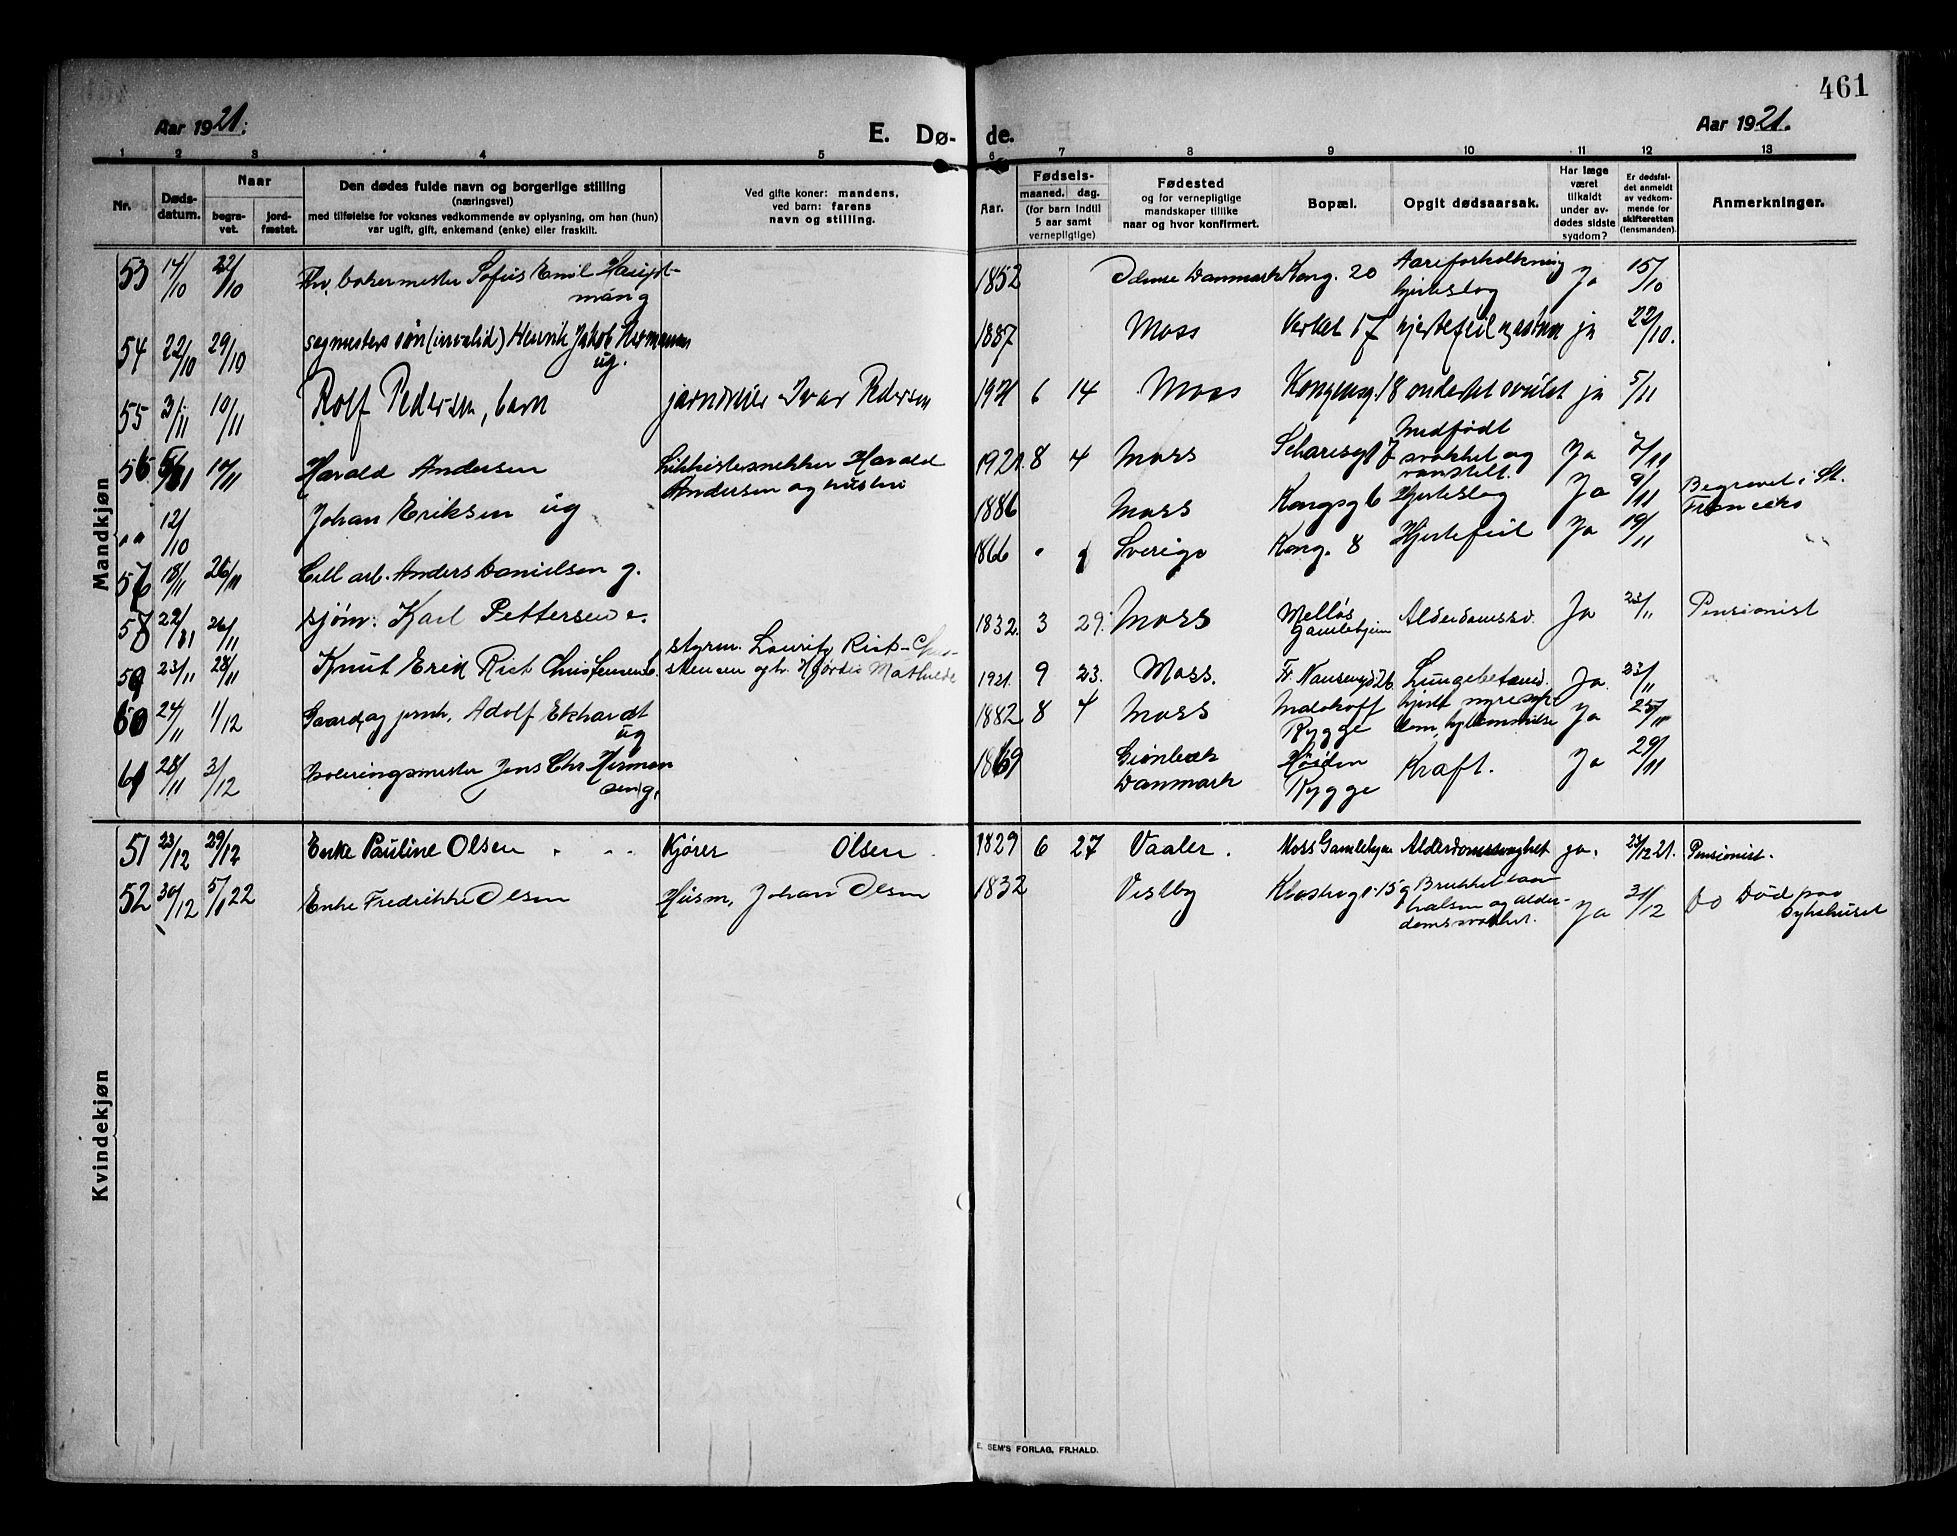 461
Aar 1921.
E. Dø-
de.
Aar 1921.
1 2 3 4 5 6 7 8 9 10 11 12 13
Nr.
Døds-
datum.
Naar
begra-
vet.
jord-
fæstet.
Den dødes fulde navn og borgerlige stilling
(næringsvei)
med tilføielse for voksnes vedkommende av oplysning, om han (hun)
var ugift, gift, enkemand (enke) eller fraskilt.
Ved gifte koner: mandens,
ved barn: farens
navn og stilling.
Aar.
Fødsels-
maaned. dag.
(for barn indtil
5 aar samt
vernepligtige)
Fødested
og for vernepligtige
mandskaper tillike
naar og hvor konfirmert.
Bopæl.
Opgit dødsaarsak.
Har læge
været
tilkaldt
under av-
dødes sidste
sygdom?
Er dødsfal-
det anmeldt
av vedkom-
mende for
skifteretten
(lensmanden).
Anmerkninger.
Mandkjøn
53 17/10 22/10 bakermester Sofus Emil 1852 Danmark Kong. 20 Aareforkalkning Ja 15/10
hjerteslag
54 22/10 29/10 sagmesters søn (invalid) Henrik Jakob Hermansen 1887 Moss Verket 17 hjertefeil ja 22/10.
ug.
55 3/11 10/11 Rolf Pedersen, barn Ivar Pedersen 1921 6 14 Moss Kongensg. 18 ondartet svulst ja 5/11
56 11/11 Harald Andersen Likkistesnekker Harald 1921. 8 4 Moss Medfødt Ja 7/11
Andersen og hustru svakhet og
vanstelt.
" 12/10 Johan Eriksen ug 1886 Moss Kongsg 6 Hjerteslag Ja 9/11 Begravet i St.
57 18/11 26/11 Cell arb. Anders Danielsen g. 1866 Sverige Kong. 8 Hjertefeil Ja 19/11
58 22/11 26/11 sjøm. Karl Pettersen e. 1832. 3 29. Moss Melløs Ja 23/11 Pensionist
Gamlehjem
59 23/11 28/11 Knut Erik Rist Christensen b. styrm. Lauritz Rist-Chri- 1921. 9 23. Moss. Fr. Nansensgd 26 Lungebetænd. Ja. 23/11
stensen og h. Hjørdis Mathilde
60 24/11 1/12 Adolf Ekhardt 1882 8 4 Moss Ja 25/11
ug Rygge
61 28/11 3/12 Isoleringsmester Jens Chr. Herman- 1869 Kraft. Ja 29/11
sen g. Danmark Rygge
Kvindekjøn
51 23/12 29/12 Enke Pauline Olsen Kjører Olsen 1829 6 27 Vaaler. Moss Gamlehjem Alderdomssvaghet ja. 23/12 21. Pensionist.
52 30/12 5/1 22 Enke Fredrikke Olsen Husm. Johan Olsen 1832 Vestby Brukket laar- Ja 31/12 Do Død paa
halsen og alder- Sykehuset
domssvakhet.
E. SEM'S FORLAG, FR.HALD.